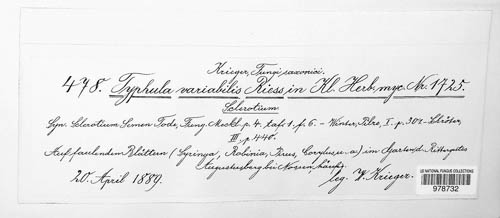 Krieger, Fungi saxonici.
478. Typhula variabilis Riess, in Kl. Herb. myc. Nr. 1725.
Sclerotium
Syn. Sclerotium Semen Tode, Fung. Meckl. p. 4. taf. 1. f. 6. – Winter, Pilze, I. p. 302. Schröter,
III, p. 440.
Auf faulenden Blättern (Syringa, Robinia, Pirus, Corylus u. a) im Garten d. Rittergutes
Augustusberg bei Nossen, häufig.
20. April 1889.
leg. W. Krieger.
US NATIONAL FUNGUS COLLECTIONS
978732